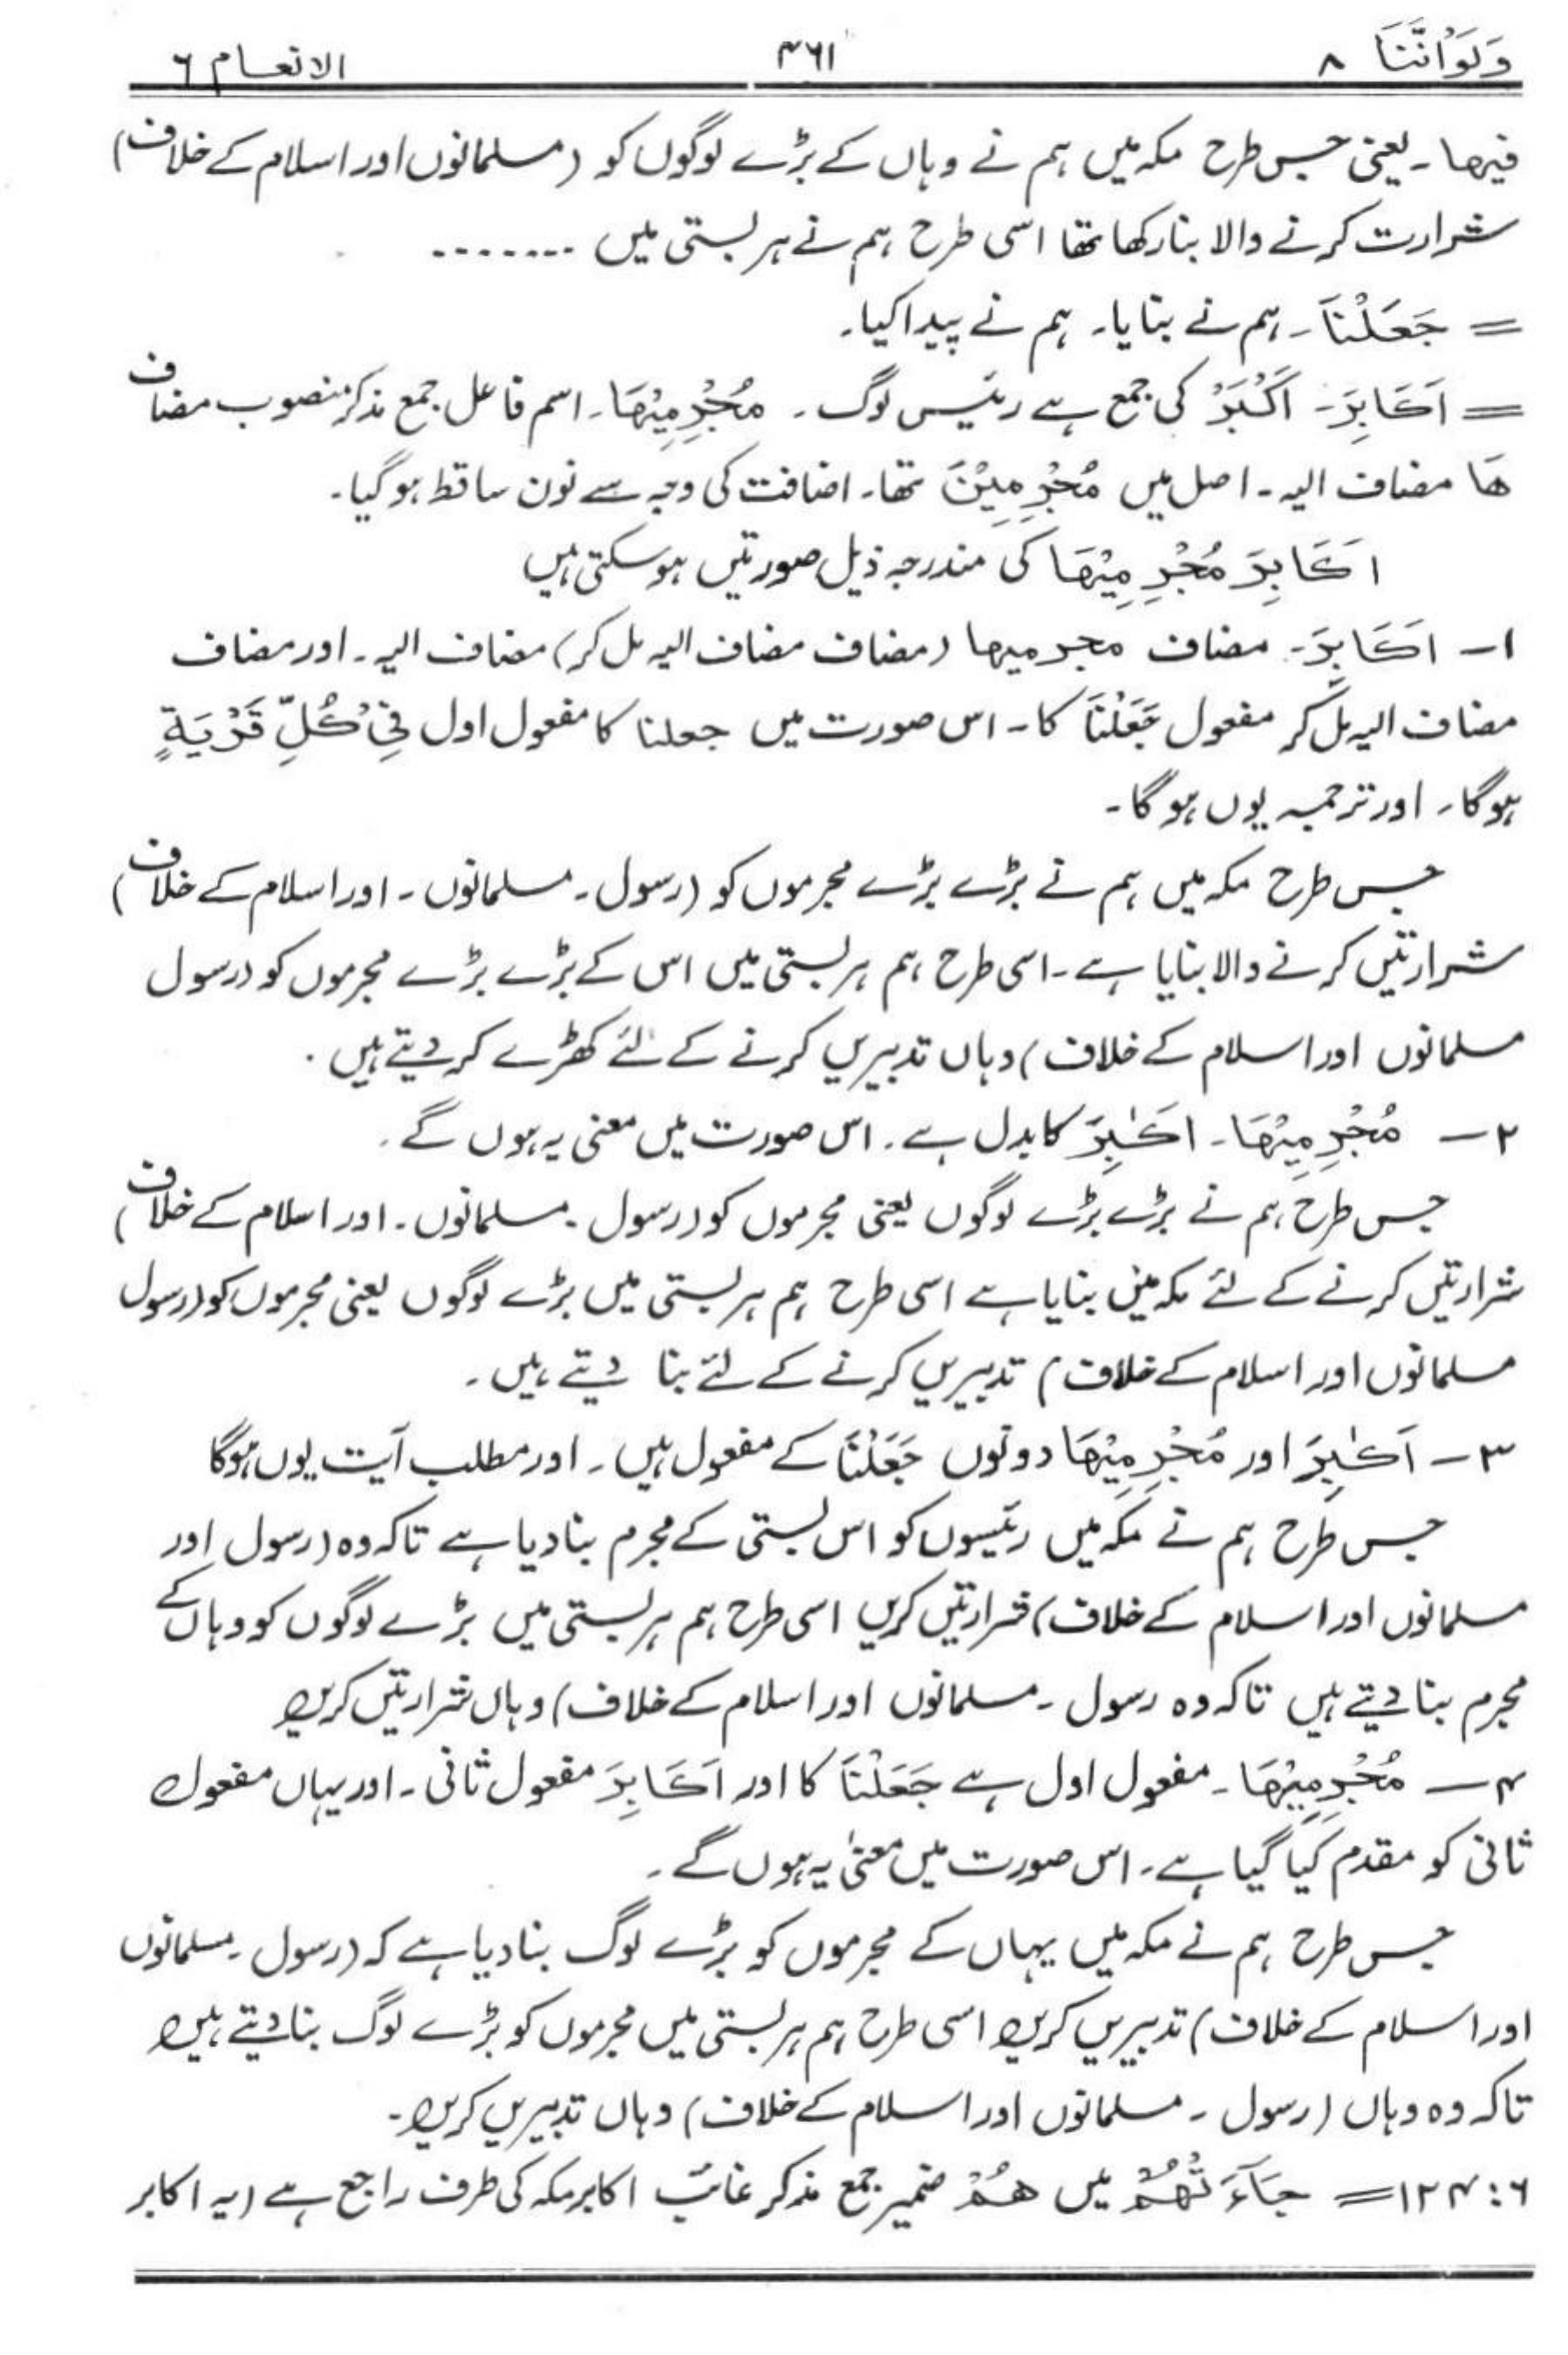 وَلَوْاَنَّنَا ۸ ۴۶۱ الانعام ۶
فیھا۔ یعنی جس طرح مکہ میں ہم نے وہاں کے بڑے لوگوں کو (مسلمانوں اور اسلام کے خلاف)
شرارت کرنے والا بنا رکھا تھا اسی طرح ہم نے ہر بستی میں ۔۔۔۔۔۔۔
= جَعَلْنَا۔ ہم نے بنایا۔ ہم نے پیدا کیا۔
= اَكَابِرَ۔ اَكْبَرُ کی جمع ہے رئیس لوگ۔ مُجْرِمِيْهَا۔ اسم فاعل جمع مذکر منصوب مضاف
ھَا مضاف الیہ۔ اصل میں مُجْرِمِيْنَ تھا۔ اضافت کی وجہ سے نون ساقط ہو گیا۔
اَكَابِرَ مُجْرِمِيْهَا کی مندرجہ ذیل صورتیں ہو سکتی ہیں
۱۔ اَكَابِرَ۔ مضاف مجرمیھا (مضاف مضاف الیہ مل کر) مضاف الیہ۔ اور مضاف
مضاف الیہ مل کر مفعول جَعَلْنَا کا۔ اس صورت میں جعلنا کا مفعول اول فِيْ كُلِّ قَرْيَةٍ
ہوگا۔ اور ترجمہ یوں ہوگا۔
جس طرح مکہ میں ہم نے بڑے بڑے مجرموں کو (رسول۔ مسلمانوں۔ اور اسلام کے خلاف)
شرارتیں کرنے والا بنایا ہے۔ اسی طرح ہم ہر بستی میں اس کے بڑے بڑے مجرموں کو (رسول
مسلمانوں اور اسلام کے خلاف) وہاں تدبیریں کرنے کے لئے کھڑے کر دیتے ہیں۔
۲۔ مُجْرِمِيْهَا۔ اَكٰبِرَ کا بدل ہے۔ اس صورت میں معنی یہ ہوں گے۔
جس طرح ہم نے بڑے بڑے لوگوں یعنی مجرموں کو (رسول۔ مسلمانوں۔ اور اسلام کے خلاف)
شرارتیں کرنے کے لئے مکہ میں بنایا ہے اسی طرح ہم ہر بستی میں بڑے لوگوں یعنی مجرموں کو (رسول
مسلمانوں اور اسلام کے خلاف) تدبیریں کرنے کے لئے بنا دیتے ہیں۔
۳۔ اَكٰبِرَ اور مُجْرِمِيْهَا دونوں جَعَلْنَا کے مفعول ہیں۔ اور مطلب آیت یوں ہوگا
جس طرح ہم نے مکہ میں رئیسوں کو اس بستی کے مجرم بنا دیا ہے تاکہ وہ (رسول اور
مسلمانوں اور اسلام کے خلاف) شرارتیں کریں اسی طرح ہم ہر بستی میں بڑے لوگوں کو وہاں کے
مجرم بنا دیتے ہیں تاکہ وہ رسول۔ مسلمانوں اور اسلام کے خلاف) وہاں شرارتیں کریں
۴۔ مُجْرِمِيْهَا۔ مفعول اول ہے جَعَلْنَا کا اور اَكَابِرَ مفعول ثانی۔ اور یہاں مفعول
ثانی کو مقدم کیا گیا ہے۔ اس صورت میں معنیٰ یہ ہوں گے۔
جس طرح ہم نے مکہ میں یہاں کے مجرموں کو بڑے لوگ بنا دیا ہے کہ (رسول۔ مسلمانوں
اور اسلام کے خلاف) تدبیریں کریں اسی طرح ہم ہر بستی میں مجرموں کو بڑے لوگ بنا دیتے ہیں
تاکہ وہ وہاں (رسول۔ مسلمانوں اور اسلام کے خلاف) وہاں تدبیریں کریں۔
۶:۱۲۴= جَآءَتْهُمْ میں هُمْ ضمیر جمع مذکر غائب اکابر مکہ کی طرف راجع ہے (یہ اکابر